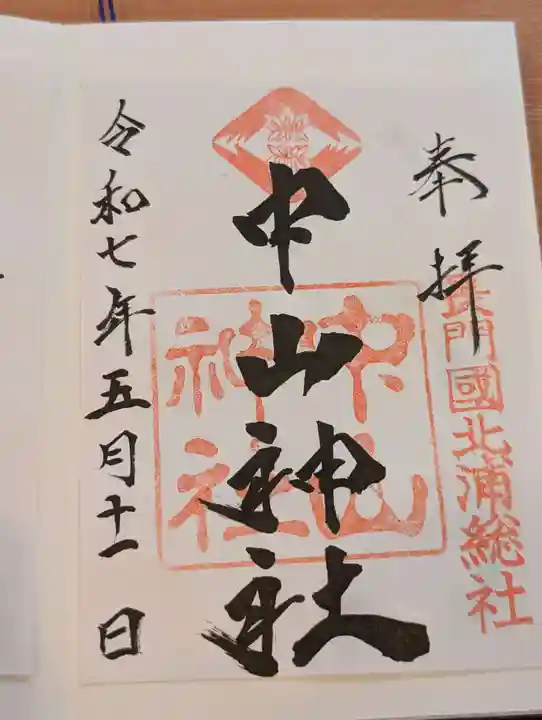 奉拝
長門國北浦総社
中山神社
中山神社
令和七年五月十一日